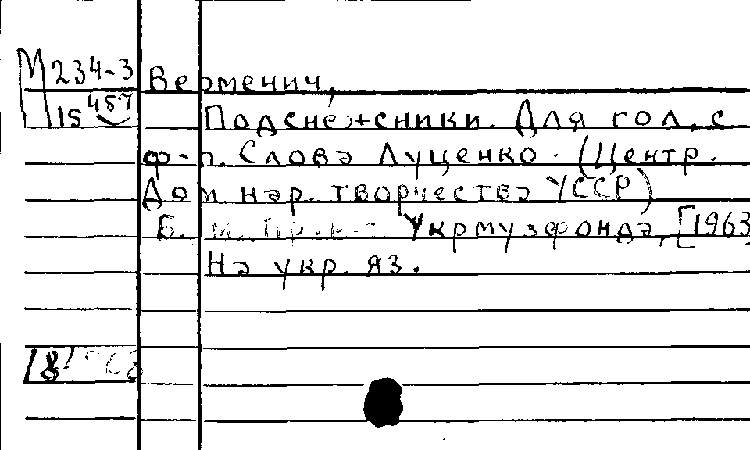 М 234-3 Верменич,
15 457 Подснежники. Для гол. с
ф-п. Слова Луценко. (Центр.
Дом нар. творчества УССР)
Б. м. Укрмузфонда, [1963
На укр. яз.